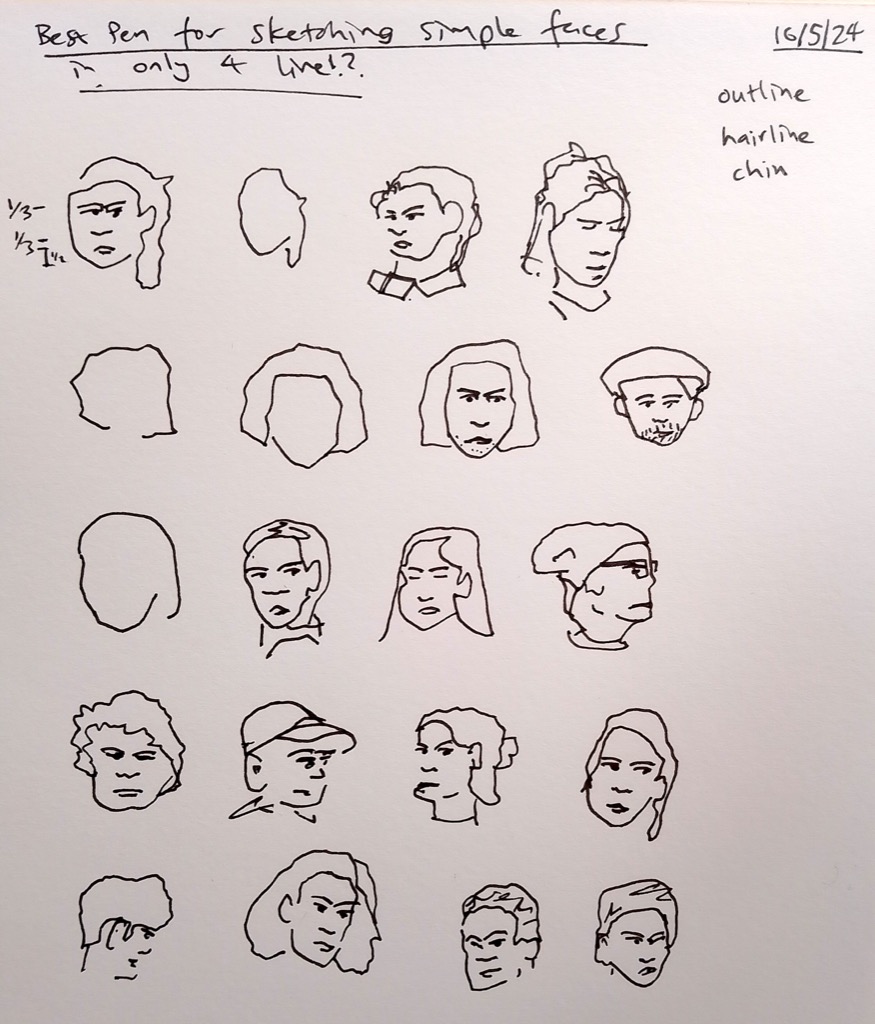 Best Pen for sketching simple faces
in only 4 lines?
16/5/24
outline
hairline
chin
1/3-
1/3-
1/2